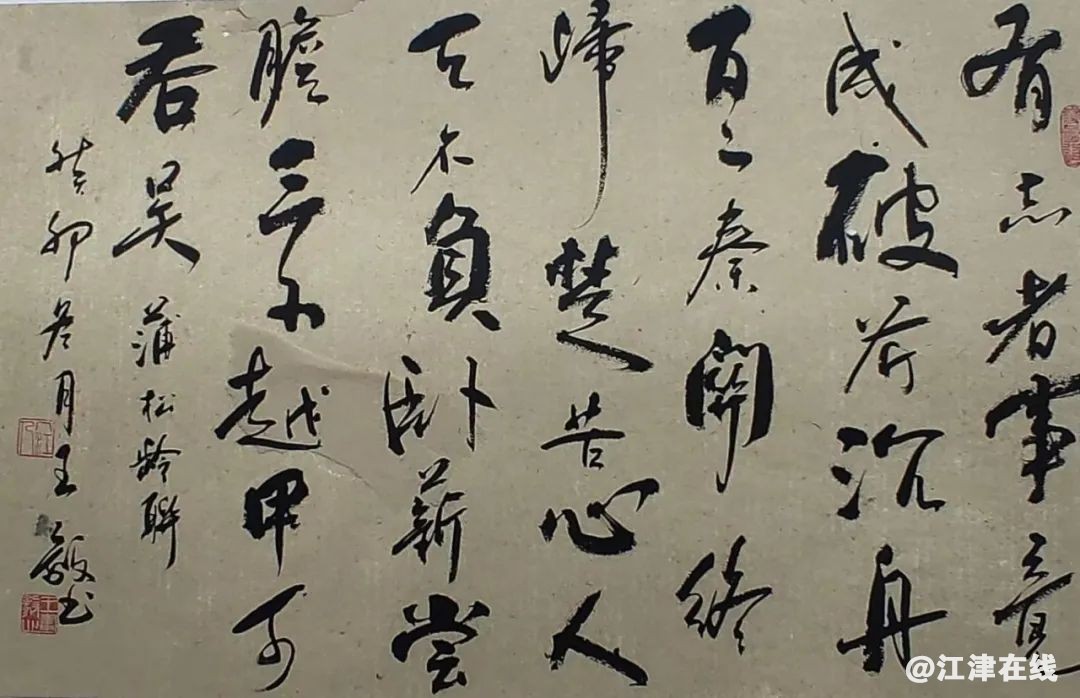 有志者事竟
成破釜沉舟
百二秦關終
歸楚苦心人
天不負卧薪嘗
膽三千越甲可
吞吴 蒲松齡聯
癸卯冬月王毅书
@江津在线